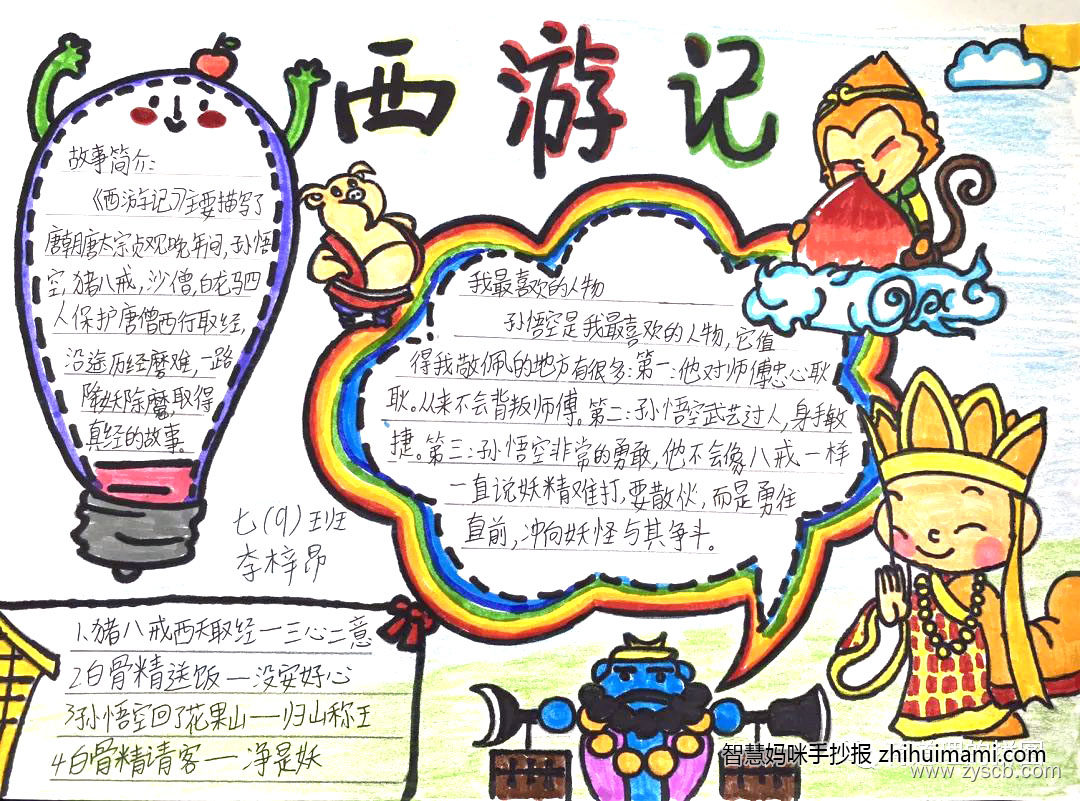 西游记
故事简介:
《西游记》主要描写了
唐朝唐太宗贞观晚年间,孙悟
空,猪八戒,沙僧,白龙马四
人保护唐僧西行取经,
沿途历经磨难,一路
降妖除魔,取得
真经的故事。
七(9)班
李梓昂
我最喜欢的人物
孙悟空是我最喜欢的人物,它值
得我敬佩的地方有很多:第一:他对师傅忠心耿
耿。从来不会背叛师傅。第二:孙悟空武艺过人,身手敏
捷。第三:孙悟空非常的勇敢,他不会像八戒一样
一直说妖精难打,要散伙,而是勇往
直前,冲向妖怪与其争斗。
1.猪八戒西天取经—三心二意
2白骨精送饭—没安好心
3孙悟空回了花果山——归山称王
4白骨精请客——净是妖
智慧妈咪手抄报 zhihuimami.com
www.zyscb.com